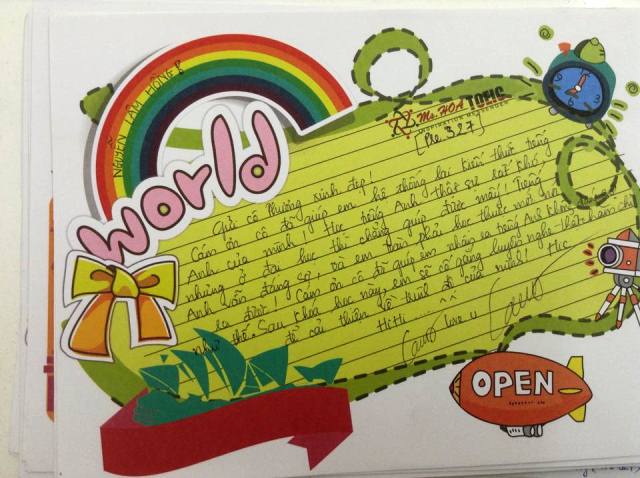 NGUYỄN TÂM HỒNG
world
Ms. HOA TOEIC
[Pre 327]
Gửi cô Phương xinh đẹp!
Cám ơn cô đã giúp em hệ thống lại kiến thức tiếng
Anh của mình! Học tiếng Anh thật sự rất khó,
nhưng ở đại học thì chẳng giúp được mấy! Tiếng
Anh vẫn đáng sợ, và em toàn phải học thuộc mới nói
ra được! Cám ơn cô đã giúp em nhận ra tiếng Anh không
như thế. Sau khóa học này, em sẽ cố gắng luyện nghe
để cải thiện về trình độ của mình! Hic
HiHi ^^
Love u
OPEN